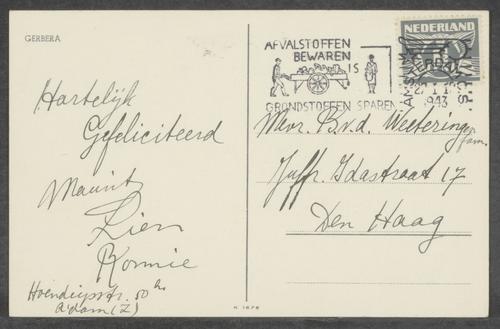 GERBERA
Hartelijk
Gefeliciteerd
Maurits
Lien
Ronnie
Hoendiepstr. 50 hs
A'dam (Z)
AFVALSTOFFEN
BEWAREN
IS
GRONDSTOFFEN SPAREN
NEDERLAND
AMSTERDAM
1943
Mevr. B.v.d. Weetering
fam.
Juffr. Idastraat 17
Den Haag
K 1676